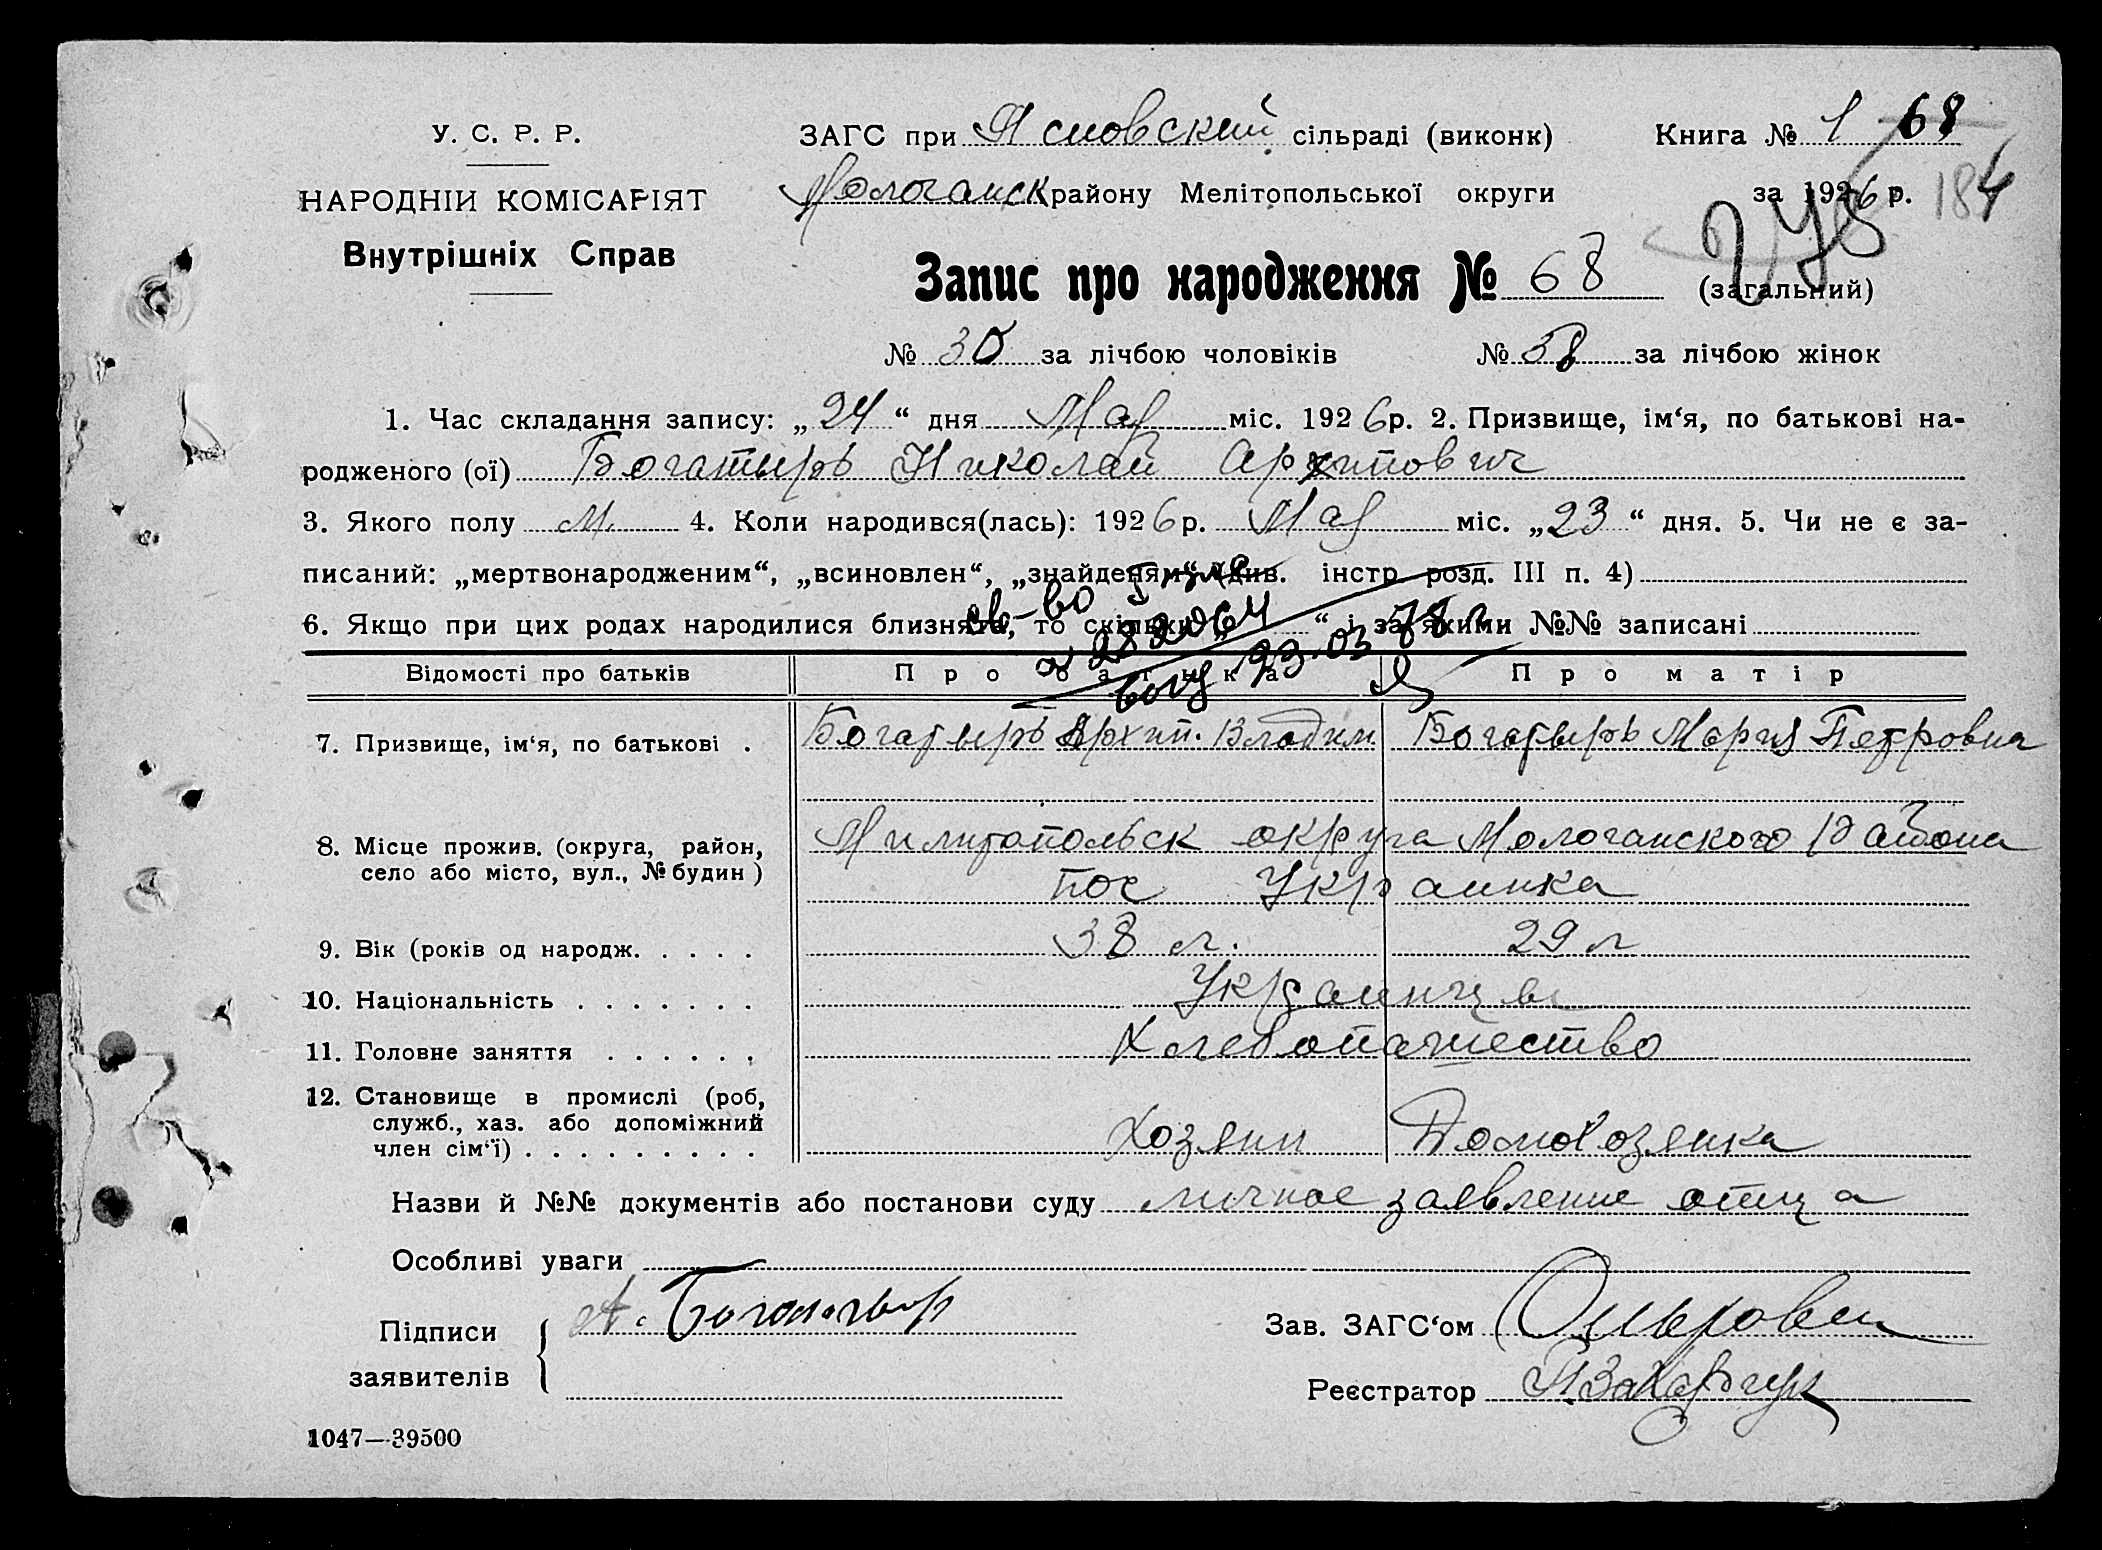 У. С. Р. Р.
НАРОДНІЙ КОМІСАРІЯТ
Внутрішніх Справ
ЗАГС при Ясновский сільраді (виконк)
Молочанск району Мелітопольської округи
Книга № 1 68
за 1926 р. 184
278
Запис про народження № 68 (загальний)
№ 30 за лічбою чоловіків № 38 за лічбою жінок
1. Час складання запису: „24“ дня Мая міс. 1926р. 2. Призвище, ім‘я, по батькові на-
родженого (ої) Богатырь Николай Архипович
3. Якого полу М. 4. Коли народився(лась): 1926р. Мая міс. „23“ дня. 5. Чи не є за-
писаний: „мертвонародженим“, „всиновлен“, „знайденям“ (див. інстр. розд. III п. 4)
6. Якщо при цих родах народилися близнята, то скільки „ “ і за якими №№ записані
св-во
23.03 78 г
Відомості про батьків Про батька Про матір
7. Призвище, ім‘я, по батькові . Богатырь Архип. Владим. Богатырь Мария Петровна
8. Місце прожив. (округа, район,
село або місто, вул., № будин) Милитопольск округа Молочанского района
пос Украинка
9. Вік (років од народж. . . . . 38 л. 29 л
10. Національність . . . . . . . Украинцы
11. Головне заняття . . . . . . Хлебопашество
12. Становище в промислі (роб,
служб., хаз. або допоміжний
член сім‘ї) . . . . . . . . . Хозяин Домохозяйка
Назви й №№ документів або постанови суду личное заявление отца
Особливі уваги
Підписи
заявителів
А. Богатырь
Зав. ЗАГС‘ом
Реєстратор
1047—39500